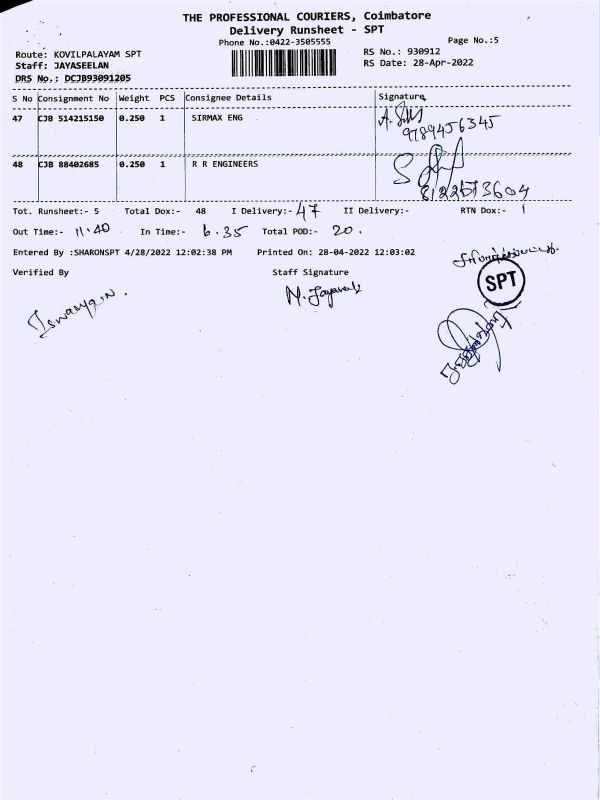 THE PROFESSIONAL COURIERS, Coimbatore
Delivery Runsheet - SPT
Phone No.:0422-3505555
Page No.:5
Route: KOVILPALAYAM SPT
RS No.: 930912
Staff: JAYASEELAN
RS Date: 28-Apr-2022
DRS No.: DCJB93091205
S No Consignment No Weight PCS Consignee Details Signature
47 CJB 514215150 0.250 1 SIRMAX ENG
9789456345
48 CJB 88402685 0.250 1 R R ENGINEERS
8122573604
Tot. Runsheet:- 5 Total Dox:- 48 I Delivery:- 47 II Delivery:- RTN Dox:- 1
Out Time:- 11.40 In Time:- 6.35 Total POD:- 20.
Entered By :SHARONSPT 4/28/2022 12:02:38 PM Printed On: 28-04-2022 12:03:02
Verified By Staff Signature
SPT